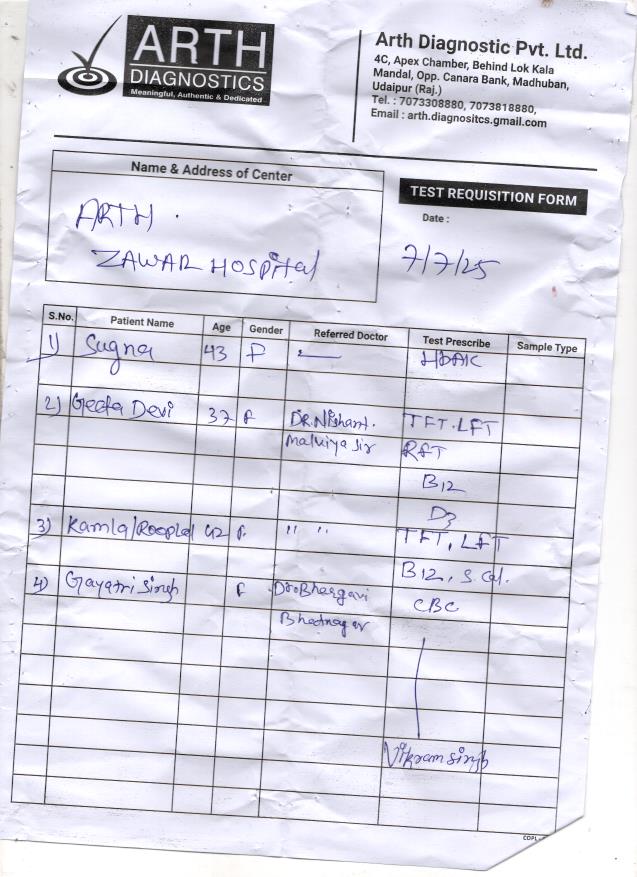 ARTH
DIAGNOSTICS
Meaningful, Authentic & Dedicated
Arth Diagnostic Pvt. Ltd.
4C, Apex Chamber, Behind Lok Kala
Mandal, Opp. Canara Bank, Madhuban,
Udaipur (Raj.)
Tel. : 7073308880, 7073818880,
Email : arth.diagnositcs.gmail.com
Name & Address of Center
ARTH.
ZAWAR HOSPital
TEST REQUISITION FORM
Date :
7/7/25
S.No. Patient Name Age Gender Referred Doctor Test Prescribe Sample Type
1) Sugna 43 F —
2) Geeta Devi 37 F DR. Nishant. TFT. LFT
Malviya Sir RFT
B12
D3
3) Kamla/Rooplal 42 F. " " TFT, LFT
B12, S. Cal.
4) Gayatri Singh F Dr. Bhargavi CBC
Bhatnagar
Vikram Singh